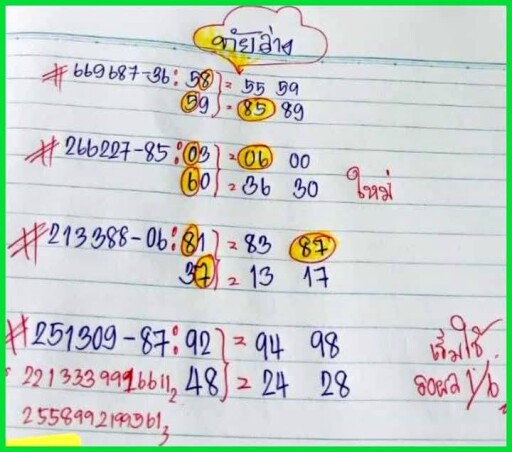 ท้ายล่าง
# 669687-36: 58 = 55 59
59 = 85 89
# 266227-85: 03 = 06 00
60 = 36 30 ใหม่
# 213388-06: 81 = 83 87
37 = 13 17
# 251309-87: 92 = 94 98 เริ่มใช้
221333999166112 48 = 24 28 งวด 1/6
25589921993613